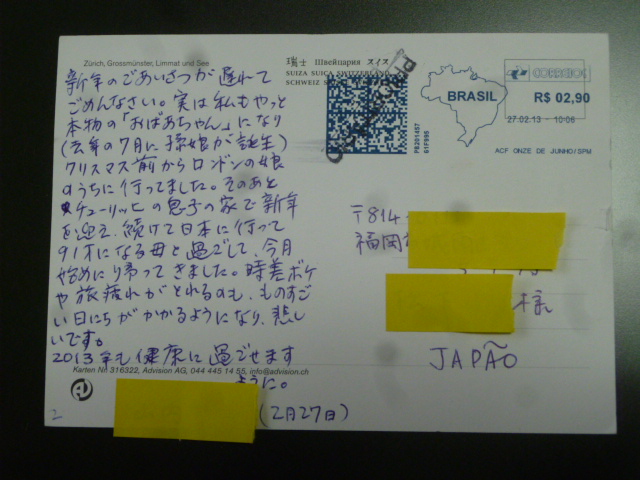 Zürich, Grossmünster, Limmat und See
瑞士 Швейцария スイス
SUIZA SUIÇA SWITZERLAND
SCHWEIZ S
BRASIL
CORREIOS
R$ 02,90
27.02.13 - 10:06
ACF ONZE DE JUNHO/SPM
新年のごあいさつが遅れて
ごめんなさい。実は私もやっと
本物の「おばあちゃん」になり
(去年の7月に孫娘が誕生)
クリスマス前からロンドンの娘
のうちに行ってました。そのあと
チューリッヒの息子の家で新年
を迎え、続けて日本に行って
91才になる母と過ごして、今月
始めに帰ってきました。時差ボケ
や旅疲れがとれるのも、ものすご
い日にちがかかるようになり、悲し
いです。
2013年も健康に過ごせます
ように。
Karten Nr. 316322, Advision AG, 044 445 14 55, info@advision.ch
(2月27日)
〒814
福岡
様
JAPÃO